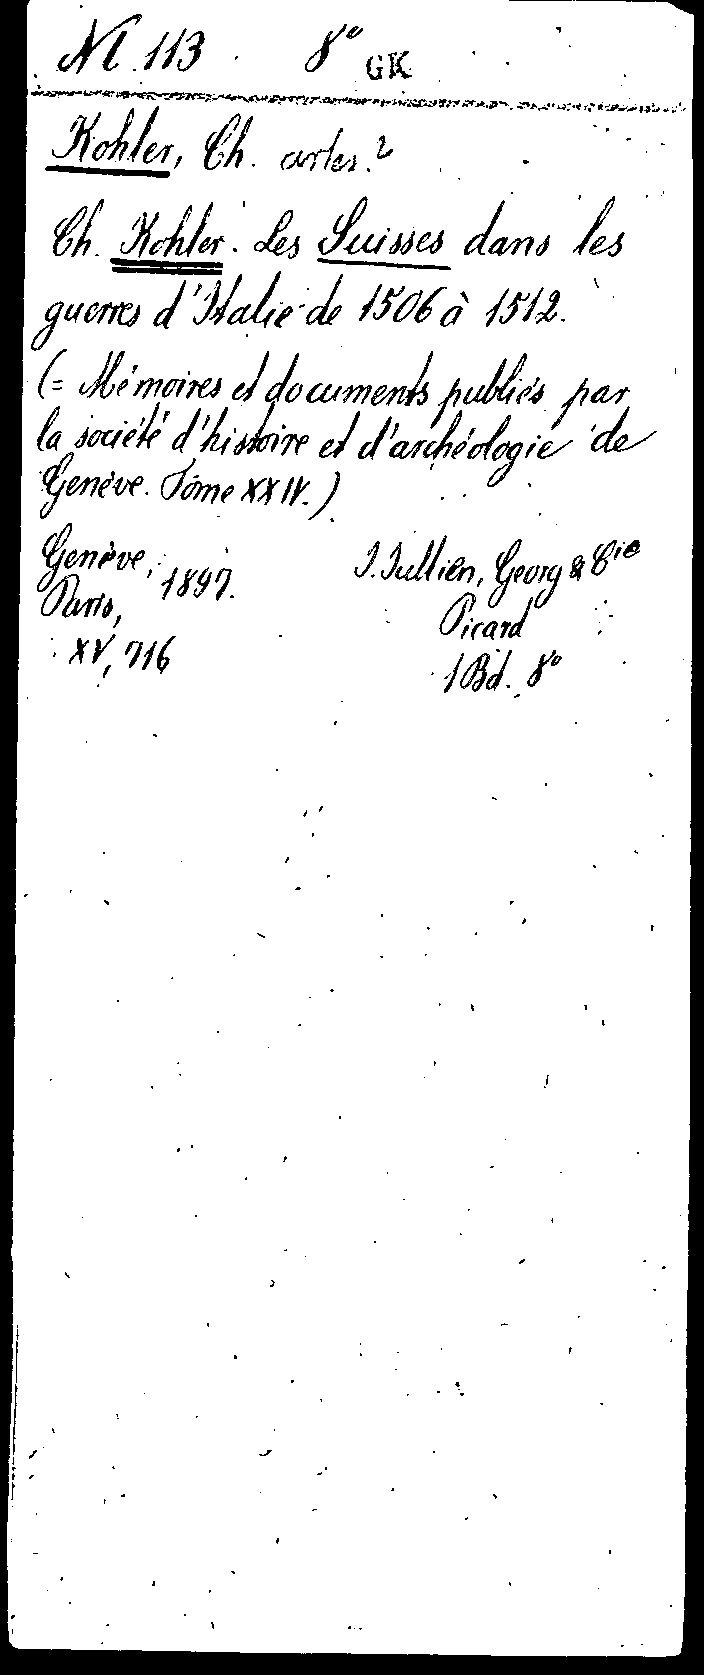 Nl 113 8° GK
Kohler, Ch. arles.?
Ch. Kohler. Les Suisses dans les
guerres d'Italie de 1506 à 1512.
(= Mémoires et documents publiés par
la société d'histoire et d'archéologie de
Genève. Tome XXIV.)
Genève, 1897. J. Jullien, Georg & Cie
Paris, Picard
XV, 716 1 Bd. 8°